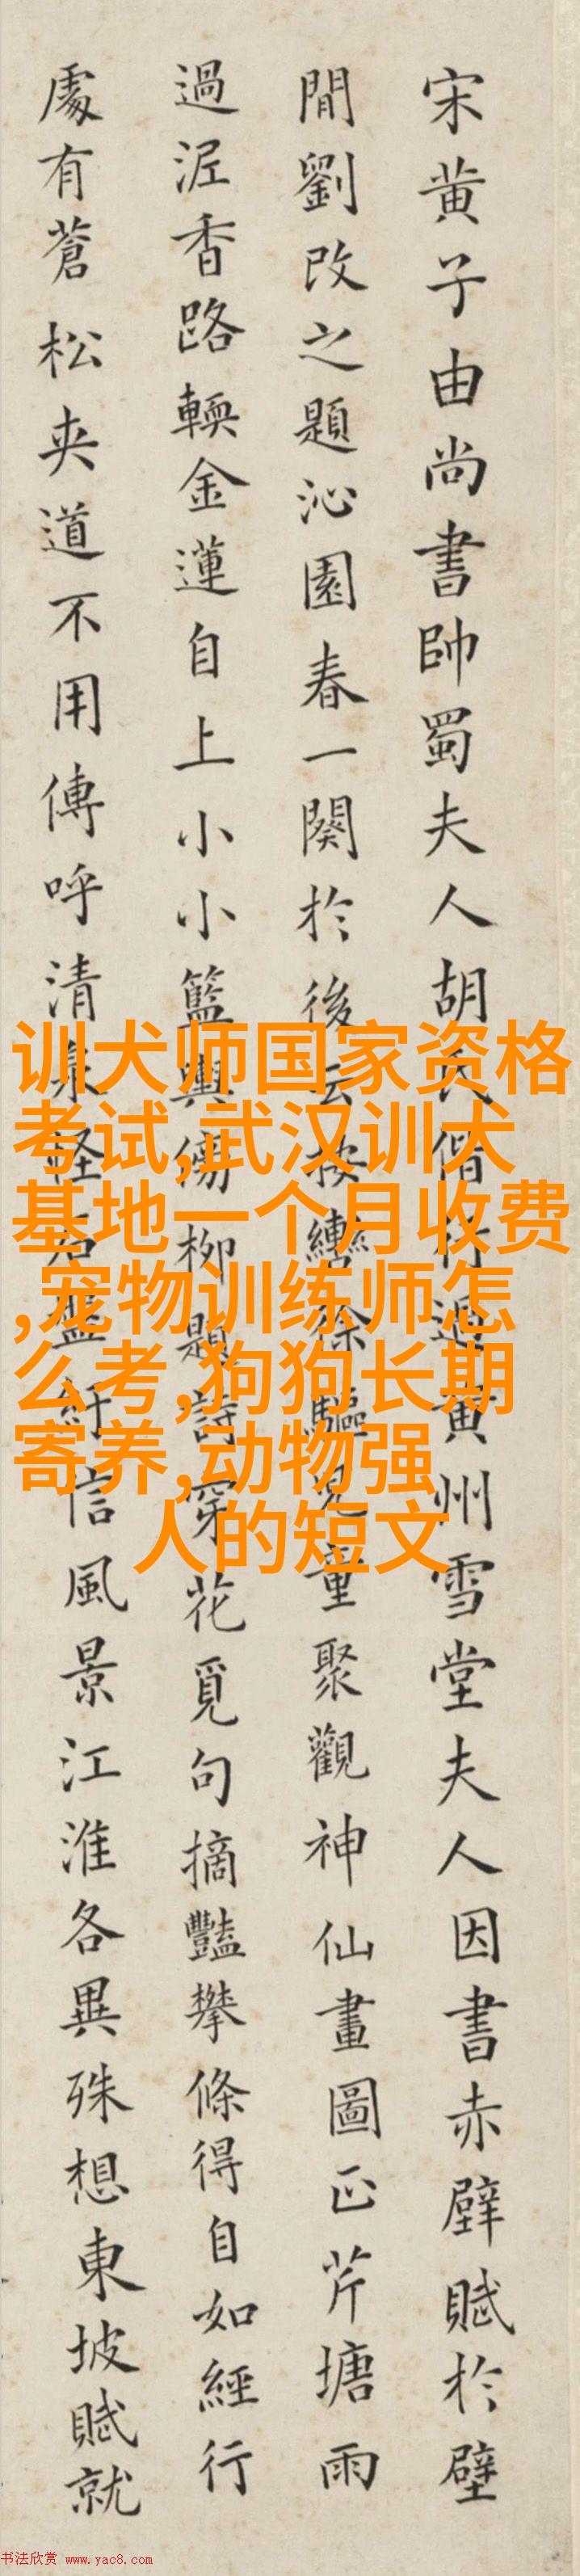 宋黄子由尚書帥蜀夫人胡氏偕行過黄州雪堂夫人因書赤壁賦於壁
間劉改之題沁園春一闋於後云按轡徐驅兒童聚觀神仙畫圖正芹塘雨
過泥香路輭金蓮自上小小籃輿傍柳題詩穿花覓句摘豔攀條得自如經行
處有蒼松夾道不用傳呼清泉怪石盤紆信風景江淮各異殊想東坡賦就
训犬师国家资格
考试,武汉训犬
基地一个月收费
,宠物训练师怎
么考,狗狗长期
寄养,动物强
人的短文
书法欣赏 www.yac8.com